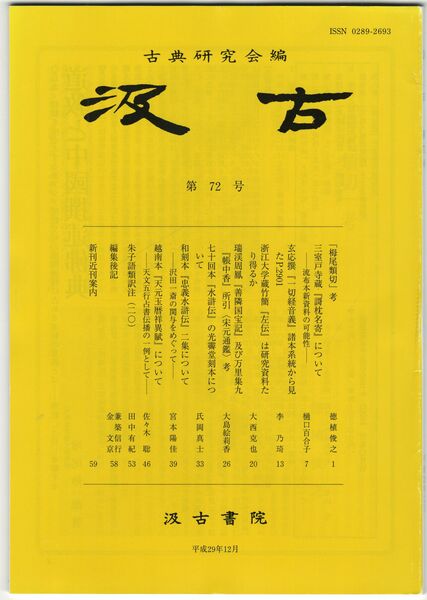 ISSN 0289-2693
古典研究会編
汲古
第 72 号
「栂尾類切」考 徳植俊之 1
三室戸寺蔵『謌枕名寄』について
――流布本新資料の可能性―― 樋口百合子 7
玄応撰『一切経音義』諸本系統から見
たP.2901 李 乃琦 13
浙江大学蔵竹簡『左伝』は研究資料た
り得るか 大西克也 20
瑞渓周鳳『善隣国宝記』及び万里集九
『帳中香』所引〈宋元通鑑〉考 大島絵莉香 26
七十回本『水滸伝』の光霽堂刻本につ
いて 氏岡真士 33
和刻本『忠義水滸伝』二集について
――沢田一斎の関与をめぐって―― 宮本陽佳 39
越南本『天元玉暦祥異賦』について
――天文五行占書伝播の一例として―― 佐々木 聡 46
朱子語類訳注(二〇) 田中有紀 53
編集後記 兼築信行
金 文京 58
新刊近刊案内 59
汲古書院
平成29年12月